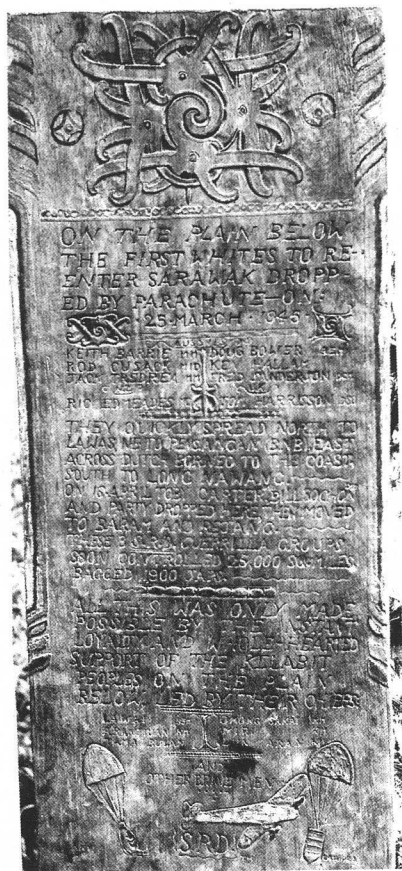 ON THE PLAIN BELOW
THE FIRST WHITES TO RE-
ENTER SARAWAK DROPP-
ED BY PARACHUTE-ON:
25·MARCH 1945
KEITH BARRIE DOUG BOWER
ROD CUSACK KEL
JACK FRED SANDERSON
RIC EDMEADES TOM HARRISSON
THEY QUICKLY SPREAD NORTH TO
LAWAS, EAST
ACROSS DUTCH BORNEO TO THE COAST,
SOUTH TO LONG NAWANG.
ON 16 APRIL TOBY CARTER BILL SOCHON
AND PARTY DROPPED HERE THEN MOVED
TO BARAM AND REJANG.
THESE 3 GUERRILLA GROUPS
CONTROLLED 25,000 SQ. MILES
BAGGED 1900 JAPS.
ALL THIS WAS ONLY MADE
POSSIBLE BY THE
LOYALTY AND WHOLE-HEARTED
SUPPORT OF THE KELABIT
PEOPLES ON THE PLAIN
BELOW, LED BY THEIR
LAWAI
AND
OTHER FINE MEN
S.R.D.